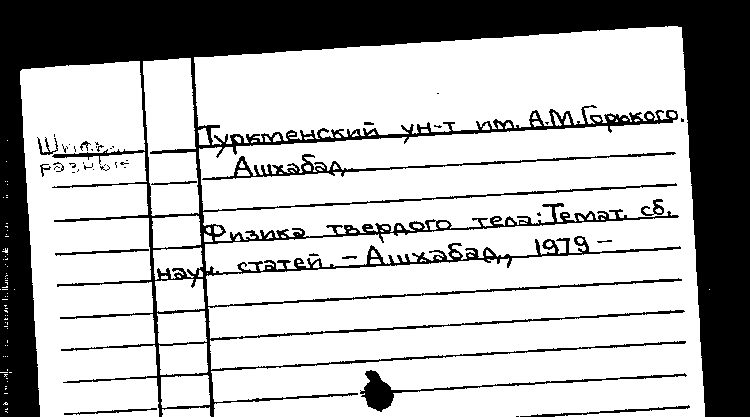 Шифры
разные
Туркменский ун-т им. А.М.Горького.
Ашхабад
Физика твердого тела: Темат. сб.
науч. статей. – Ашхабад, 1979 –